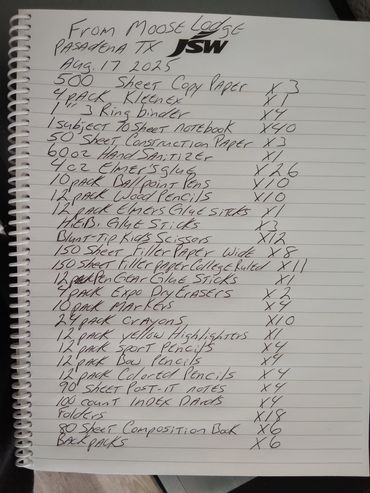 From Moose Lodge
Pasadena TX JSW
Aug. 17 2025
500 Sheet Copy Paper X 3
4 pack Kleenex X 1
1", 3 Ring binder X4
1 subject 70 sheet notebook X40
50 Sheet Construction Paper X3
60 oz Hand Sanitizer X1
4 oz Elmers glue X 26
10 pack Ball point Pens X10
12 pack Wood Pencils X10
12 pack Elmers Glue sticks X1
H.E.B. Glue Sticks X3
Blunt-Tip Kids Scissors X12
150 Sheet Filler Paper Wide X 8
150 Sheet Filler Paper College Ruled X 11
12 Pen Gear Glue Sticks X1
4 pack Expo Dry Erasers X 2
10 pack Markers X 4
24 pack crayons X10
12 pack yellow Highlighters X1
12 pack Sport Pencils X4
12 pack Bow Pencils X4
12 pack Colored Pencils X 4
90 Sheet Post-it notes X4
100 count INDEX Dards X4
Folders X18
80 Sheet Composition Book X 6
Back packs X 6